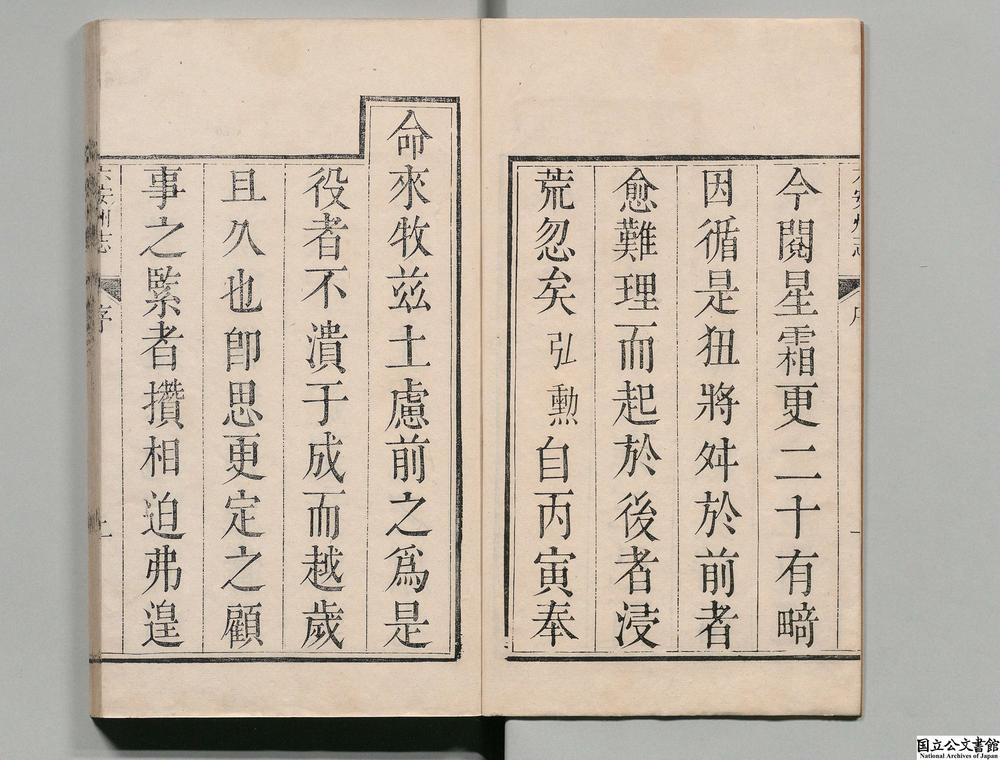 今閱星霜更二十有畸
因循是狃將舛於前者
愈難理而起於後者浸
荒忽矣弘勲自丙寅奉
命來牧茲土慮前之為是
役者不潰于成而越歲
且久也卽思更定之顧
事之緊者攢相迫弗遑
六安州志
序
國立公文書館
National Archives of Japan